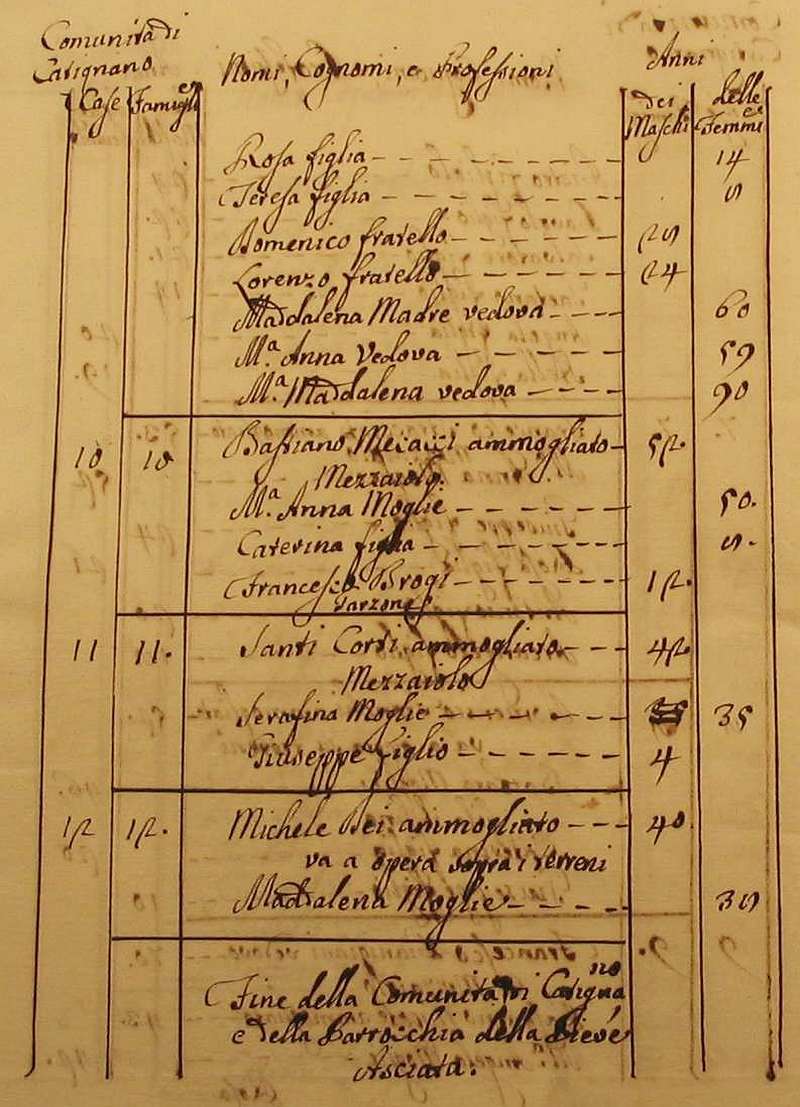 Comunità di
Catignano
Nomi, Cognomi, e Professioni
Anni
Case
Famiglie
dei
Maschi
delle
Femmie
Rosa figlia 14
Teresa figlia
Domenico fratello
Lorenzo fratello 24
Maddalena Madre vedova 60
M.a Anna Vedova 59
M.a Maddalena vedova 90
10 10 Bastiano Mecacci ammogliato 52.
Mezzaiolo.
M.a Anna Moglie 50.
Caterina figlia
Francesco Brogi 12.
Garzone
11 11. Santi Corti ammogliato 42.
Mezzaiolo
Serafina Moglie 35
Giuseppe figlio 4
12 12. Michele Bei ammogliato 40
va a opera sopra i terreni
Maddalena Moglie
Fine della Comunità di Catignano
e della Parrocchia della Pieve
Asciata.